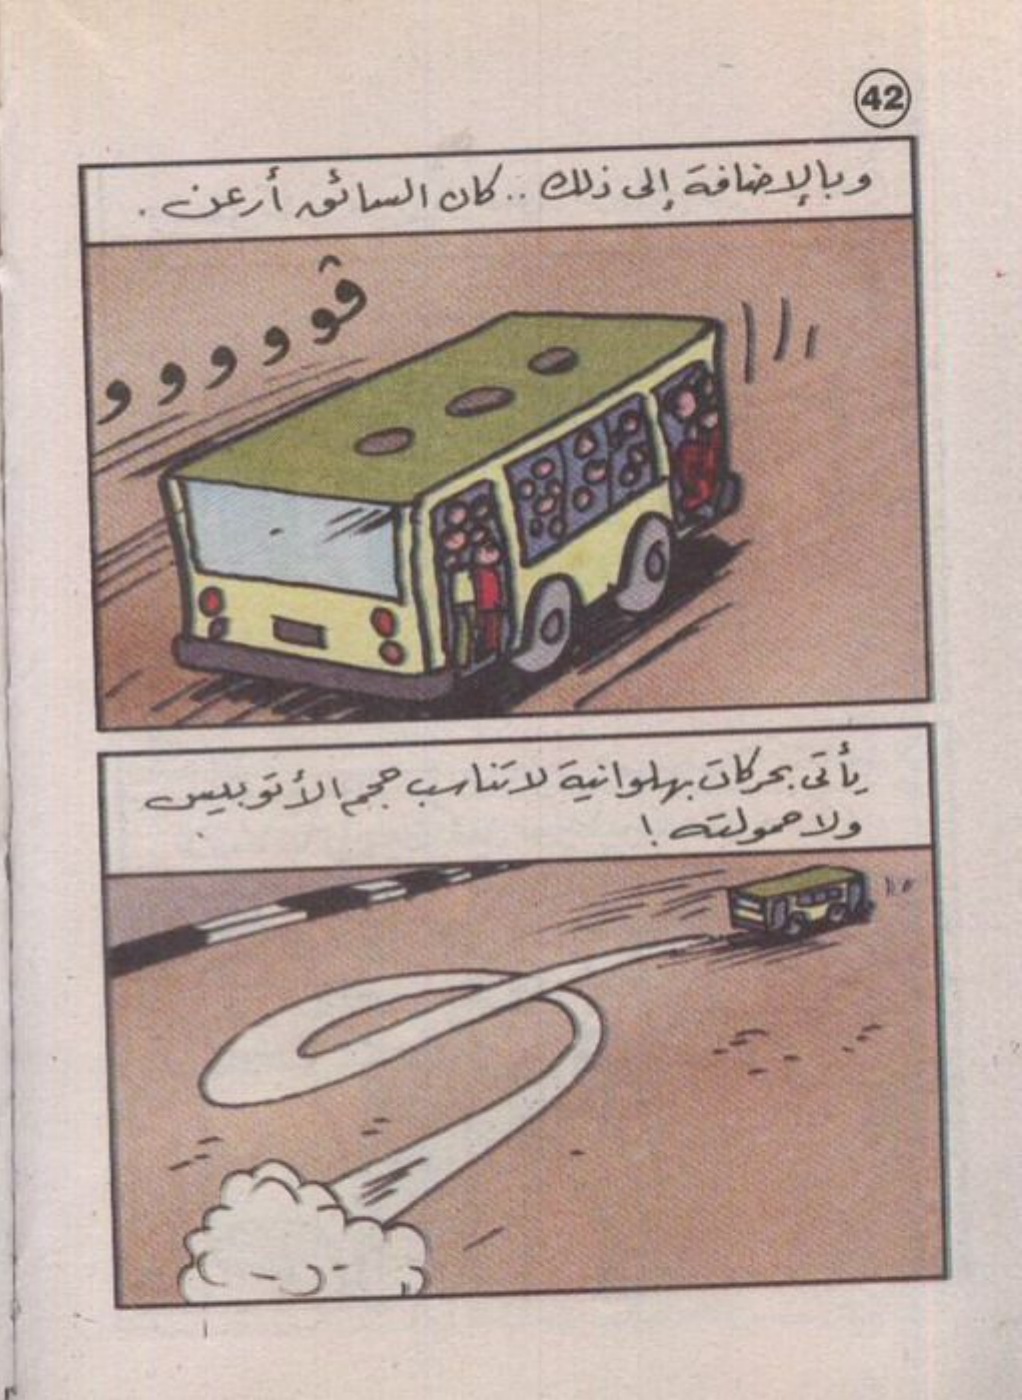 42
وبالإضافة إلى ذلك .. كان السائق أرعن .
ڤوووووو
يأتى بحركات بهلوانية لا تناسب حجم الأتوبيس
ولا حمولته !